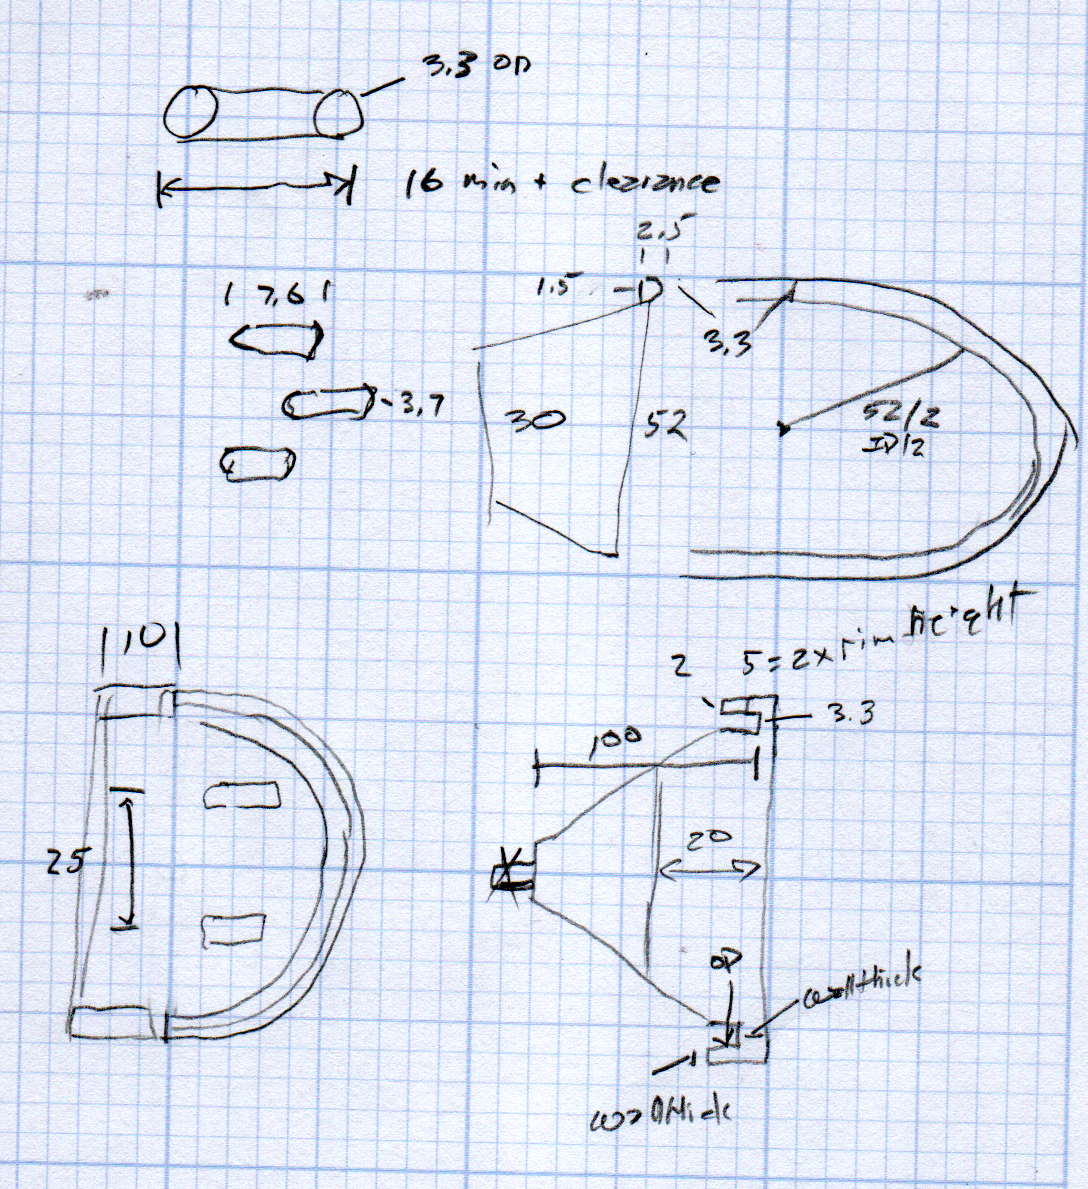 3.3 OD
16 min + clearance
2.5
1.5
7.6
3.3
3.7
30
52
52/2
ID/2
10
2
5 = 2 x rim height
3.3
100
25
20
OD
wallthick
wallthick